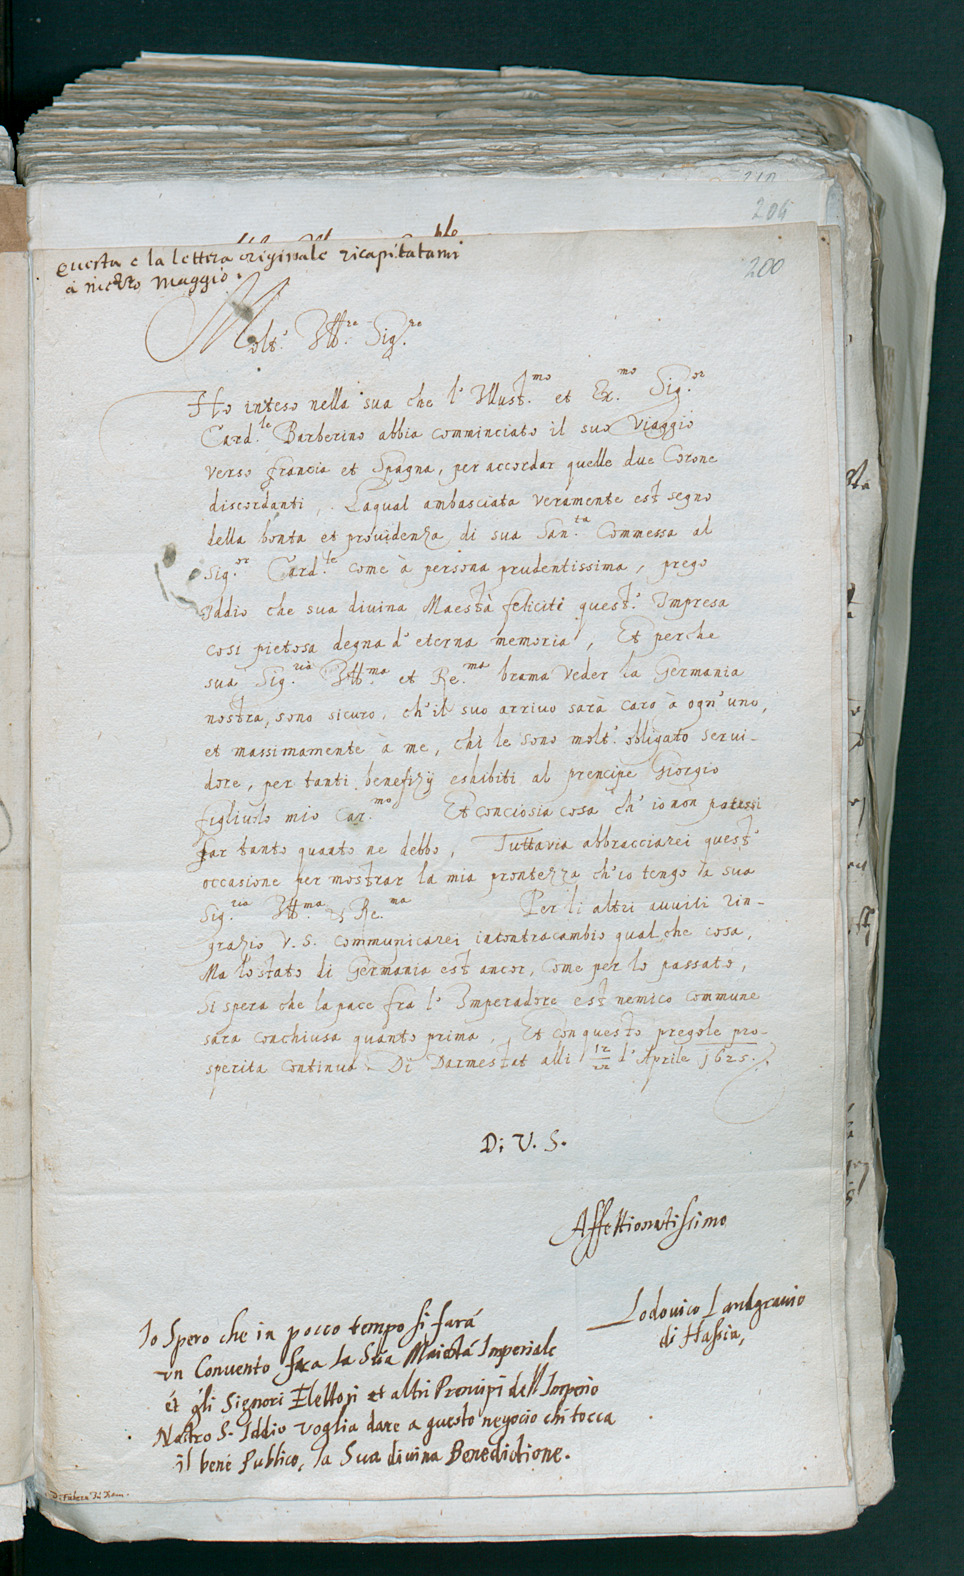 210
206
200
questa e la lettera originale ricapitatami
a mezzo Maggio.
Molt.' Ill.re Sig.re
Ho inteso nella sua che l' Illust.mo et Ex.mo Sig.or
Card.le Barberino abbia comminciato il suo Viaggio
verso francia et Spagna, per accordar quelle due Corone
discordanti, Laqual ambasciata veramente est segno
della bonta et providenza di sua San.ta Commessa al
Sig.or Card.le come à persona prudentissima, prego
Iddio che sua divina Maestà feliciti quest.' Impresa
cosi pietosa degna d' eterna memoria, Et perche
sua Sig.ria Ill.ma et Re.ma brama veder la Germania
nostra, sono sicuro, ch'il suo arrivo sarà caro à ogn' uno,
et massimamente à me, chi le sono molt.' obligato servi-
dore, per tanti benefizij eshibiti al prencipe Giorgio
figliuolo mio Car.mo Et conciosia cosa ch' io non potessi
far tanto quanto ne debbo, Tuttavia abbracciarei quest'
occasione per mostrar la mia prontezza ch'io tengo la sua
Sig.ria Ill.ma & Re.ma Per li altri avvisi rin-
grazio V. S. communicarei incontracambio qual che cosa,
Ma lo stato di Germania est ancor, come per lo passato,
Si spera che la pace fra l' Imperadore est nemico commune
sara conchiusa quanto prima, Et con questo pregole pro-
sperita continua. Di Darmestat alli 12/22 d' Aprile 1625.
Di V. S.
Affettionatissimo
Lodovico Landgravio
di Hassia,
Io Spero che in pocco tempo si farà
un Convento fra la Sua Maiestà Imperiale
et gli Signori Elettori et altri Principi dell Imperio
Nostro S. Iddio voglia dare a questo negocio chi tocca
il bene Publico, la Sua divina Benedictione.